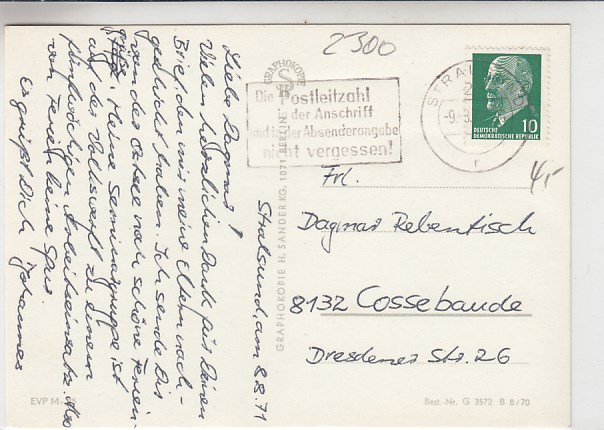 2300
Die Postleitzahl
in der Anschrift
und in der Absenderangabe
nicht vergessen!
STRAL
-9.
DEUTSCHE
DEMOKRATISCHE REPUBLIK
10
4,-
Stralsund, am 8.8.71
Liebe Dagmar!
Viele herzlichen Dank für Deinen
Brief, den mir meine Eltern nach-
geschickt haben. Ich sende Dir
von der Ostsee noch schöne Ferien-
grüße. Meine Seminargruppe ist
auf der Volkswerft zu einem
fünfwöchigen Arbeitseinsatz. Also
von Ferien keine Spur.
Es grüßt Dich Johannes
GRAPHOKOPIE
GRAPHOKOPIE H. SANDER KG, 1071 BERLIN
Frl.
Dagmar Rebentisch
8132 Cossebaude
Dresdener Str. 26
EVP M
Best.-Nr. G 3572 B 8/70